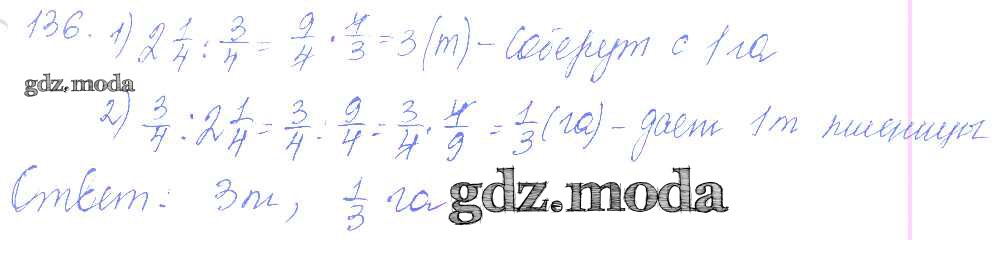 136. 1) 2 1/4 : 3/4 = 9/4 · 4/3 = 3 (т) – соберут с 1 га
gdz.moda
2) 3/4 : 2 1/4 = 3/4 : 9/4 = 3/4 · 4/9 = 1/3 (га) – дает 1т пшеницы
Ответ: 3т, 1/3 га
gdz.moda